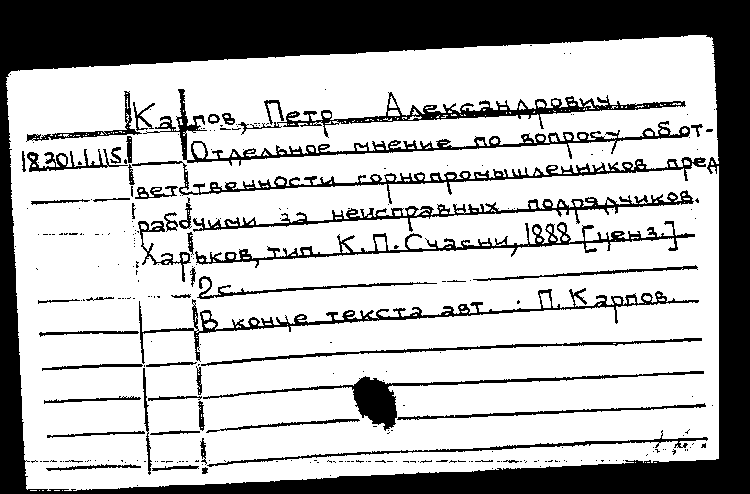 Карпов, Петр Александрович.
18.201.1.115. Отдельное мнение по вопросу об от-
ветственности горнопромышленников пред
рабочими за неисправных подрядчиков.
Харьков, тип. К.П.Счасни, 1888 [ценз.].
2с.
В конце текста авт. : П. Карпов.